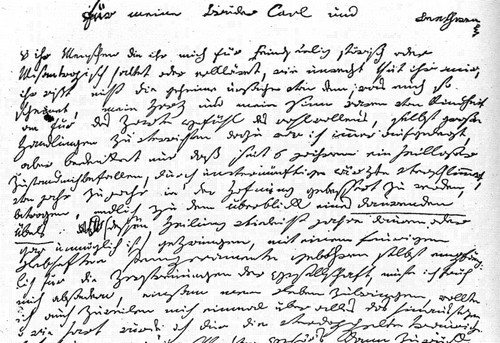 für meine Brüder Carl und Beethowen
o ihr Menschen die ihr mich für feindseelig störisch oder
Misantropisch haltet oder erkläret, wie unrecht thut ihr mir,
ihr wißt nicht die geheime ursache von dem, was euch so
scheinet, mein Herz und mein Sinn waren von Kindheit
an für das Zarte gefühl des wohlwollens, selbst große
Handlungen zu verrichten dazu war ich immer aufgelegt,
aber bedenket nur daß seit 6 jahren ein heilloser
Zustand mich befallen, durch unvernünftige ärzte verschlimmert,
von jahr zu jahr in der Hofnung gebessert zu werden,
betrogen, endlich zu dem überblick eines daurenden
Übels dessen Heilung vieleicht jahre dauren oder
gar unmöglich ist gezwungen, mit einem feurigen
Lebhaften Temperamente gebohren selbst empfäng
lich für die Zerstreuungen der Gesellschaft, muste ich früh
mich absondern, einsam mein Leben zubringen, wollte
ich auch zuweilen mich einmal über alles das hinaussezen,
o wie hart wurde ich durch die verdoppelte traurige